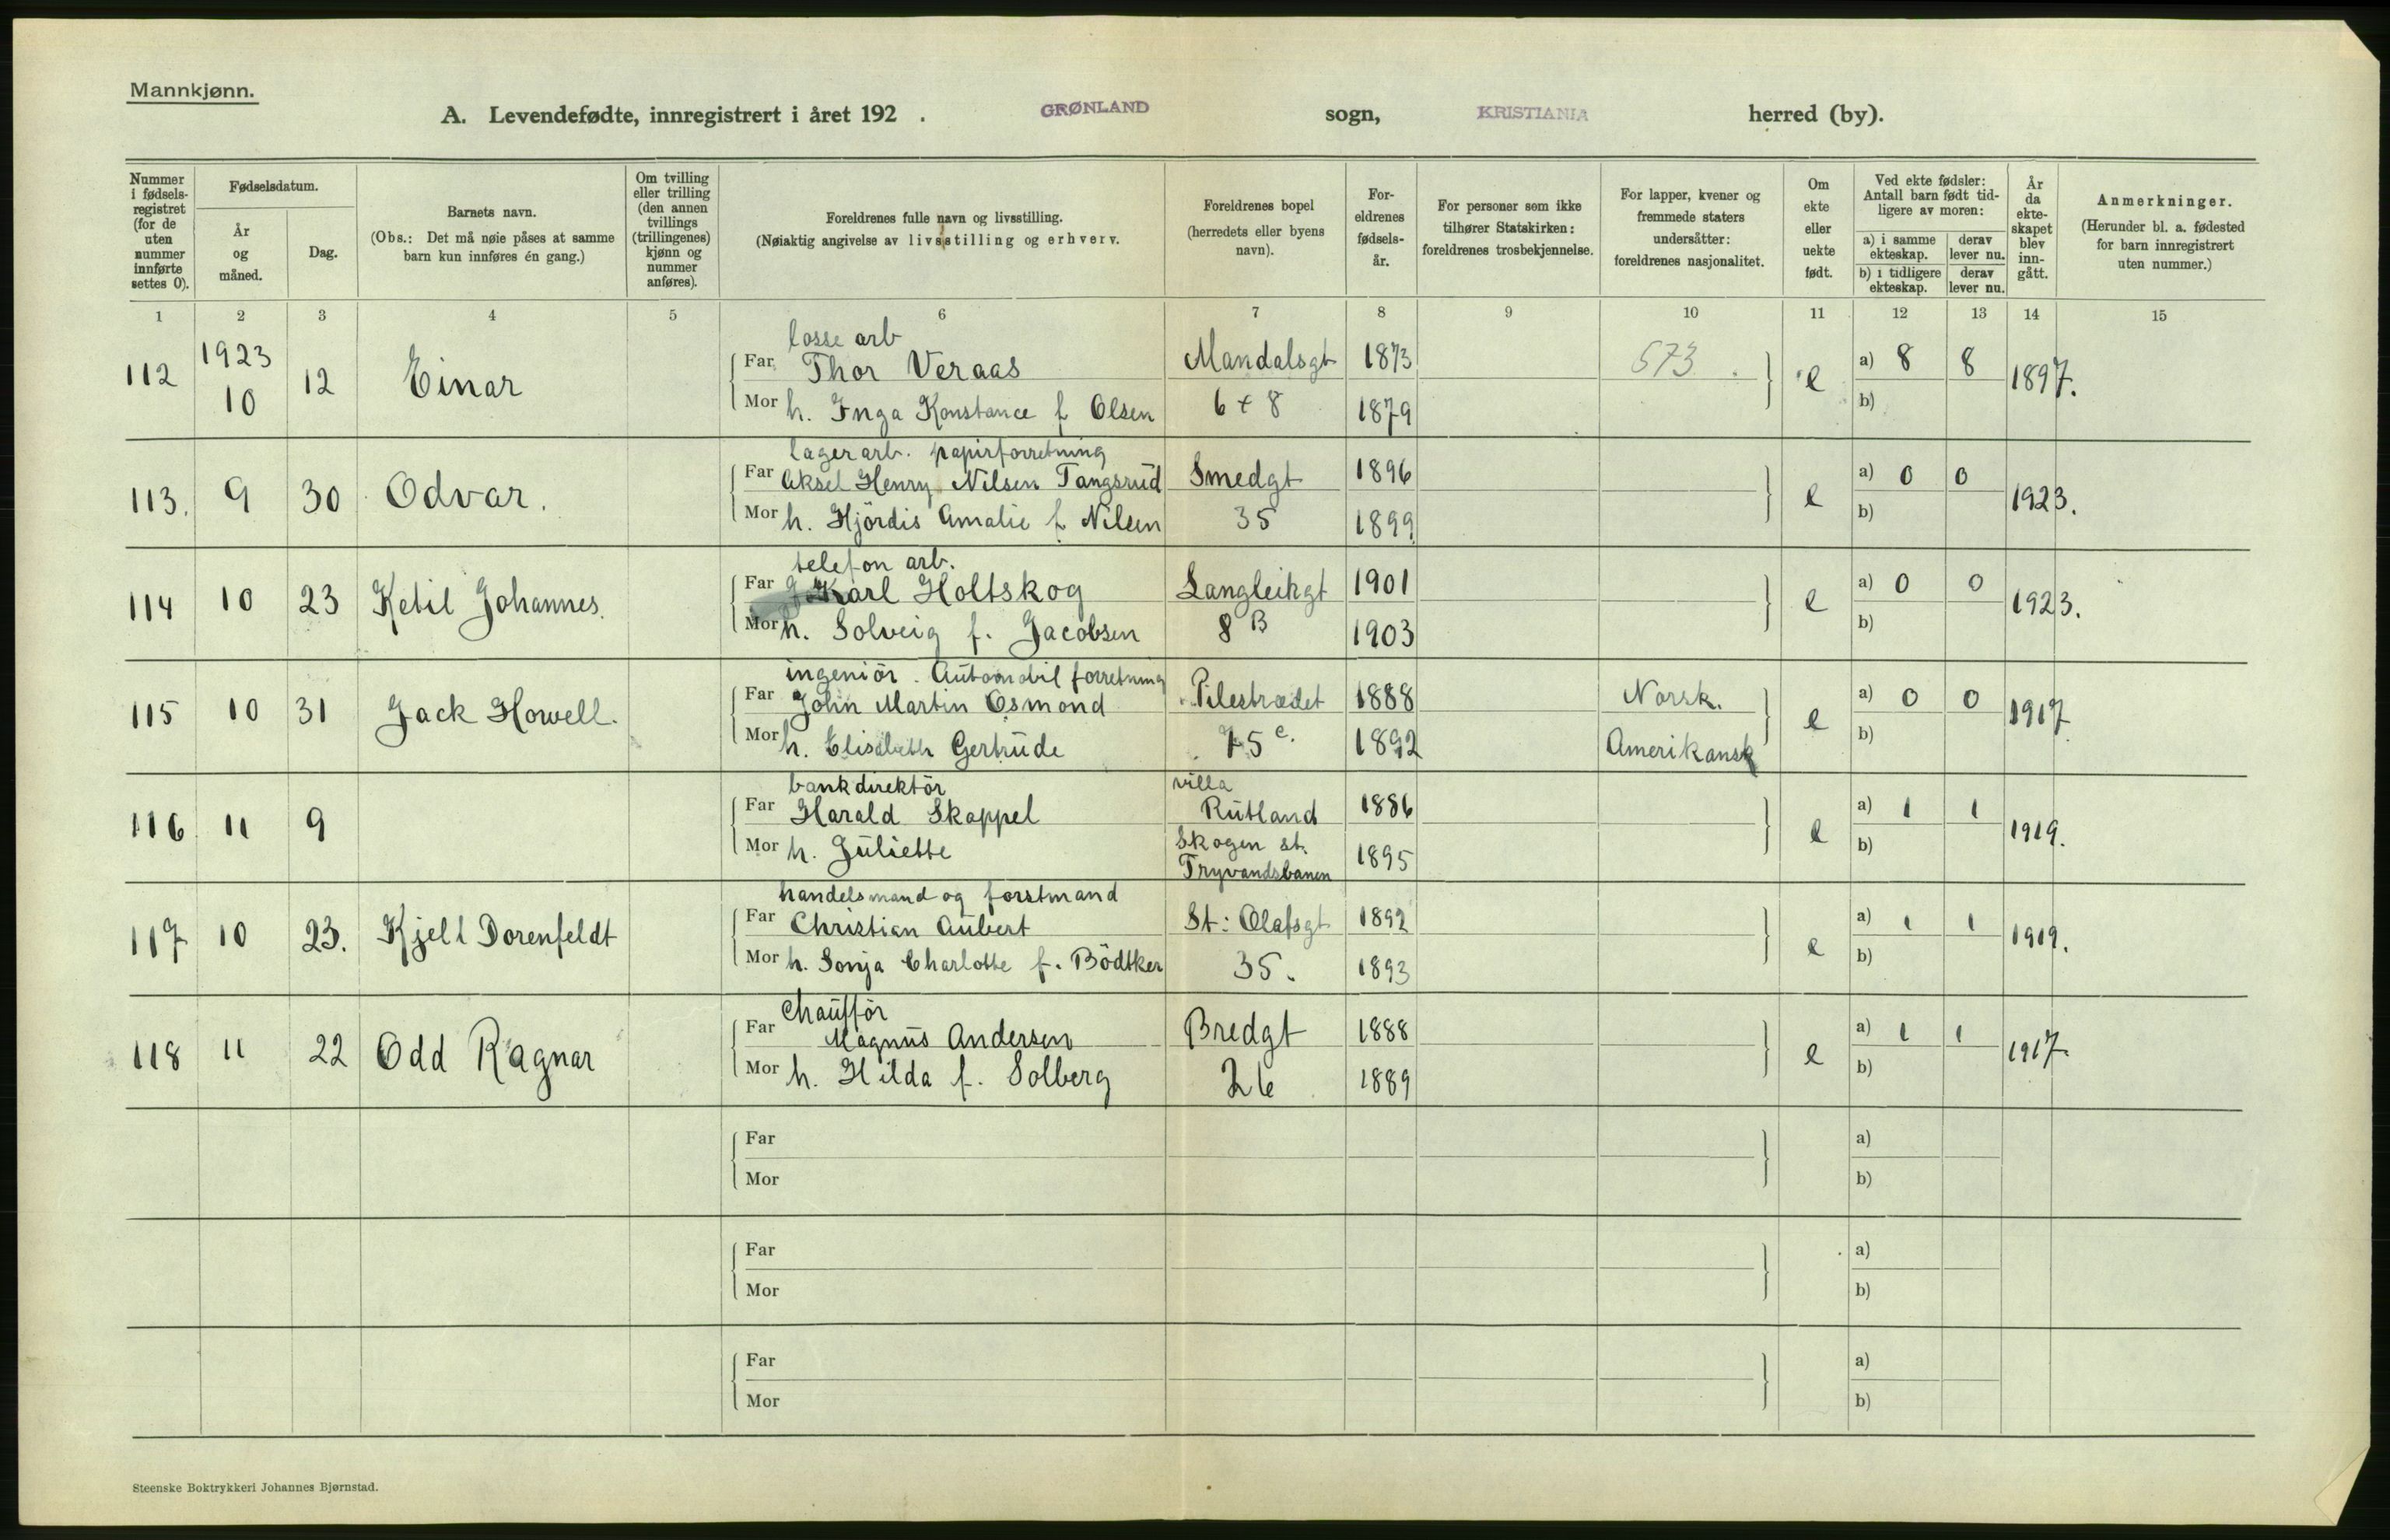 Mannkjønn.
A. Levendefødte, innregistrert i året 192 . GRØNLAND sogn, KRISTIANIA herred (by).
Nummer i fødsels- registret (for de uten nummer innførte settes 0).
Fødselsdatum.
År og måned.
Dag.
Barnets navn.
(Obs.: Det må nøie påses at samme barn kun innføres én gang.)
Om tvilling eller trilling (den annen tvillings (trillingenes) kjønn og nummer anføres).
Foreldrenes fulle navn og livsstilling.
(Nøiaktig angivelse av livsstilling og erhverv.
Foreldrenes bopel (herredets eller byens navn).
For- eldrenes fødsels- år.
For personer som ikke tilhører Statskirken: foreldrenes trosbekjennelse.
For lapper, kvener og fremmede staters undersåtter: foreldrenes nasjonalitet.
Om ekte eller uekte født.
Ved ekte fødsler: Antall barn født tid- ligere av moren:
a) i samme ekteskap. derav lever nu.
b) i tidligere ekteskap. derav lever nu.
År da ekte- skapet blev inn- gått.
Anmerkninger.
(Herunder bl. a. fødested for barn innregistrert uten nummer.)
1 2 3 4 5 6 7 8 9 10 11 12 13 14 15
losse arb
112 1923 10 12 Einar Far Thor Veraas Mandalsgt 1873 673 e a) 8 8 1897.
Mor h. Inga Konstance f Olsen 6 + 8 1879 b)
lagerarb. papirforretning
113. 9 30 Odvar. Far Aksel Henry Nilsen Tangsrud Smedgt 1896 e a) 0 0 1923.
Mor h. Hjördis Amalie f Nilsen 35 1899 b)
telefon arb.
114 10 23 Ketil Johannes. Far Karl Holtskog Langleikgt 1901 e a) 0 0 1923.
Mor h. Solveig f. Jacobsen 8 B 1903 b)
ingeniör. Automobil forretning
115 10 31 Jack Howell. Far John Martin Osmond Pilestrædet 1888 Norsk. e a) 0 0 1917
Mor h. Elisabeth Gertrude 75 c. 1892 Amerikansk b)
bankdirektör villa
116 11 9 Far Harald Skappel Rutland 1886 e a) 1 1 1919.
Mor h. Juliette Skogen st. Tryvandsbanen 1895 b)
handelsmand og forstmand
117 10 23. Kjell Dorenfeldt Far Christian Aubert St: Olafsgt 1892 e a) 1 1 1919.
Mor h. Sonja Charlotte f. Bödtker 35. 1893 b)
Chaufför
118 11 22 Odd Ragnar Far Magnus Andersen Bredgt 1888 e a) 1 1 1917.
Mor h. Hilda f. Solberg 26 1889 b)
Far a)
Mor b)
Far a)
Mor b)
Far a)
Mor b)
Steenske Boktrykkeri Johannes Bjørnstad.